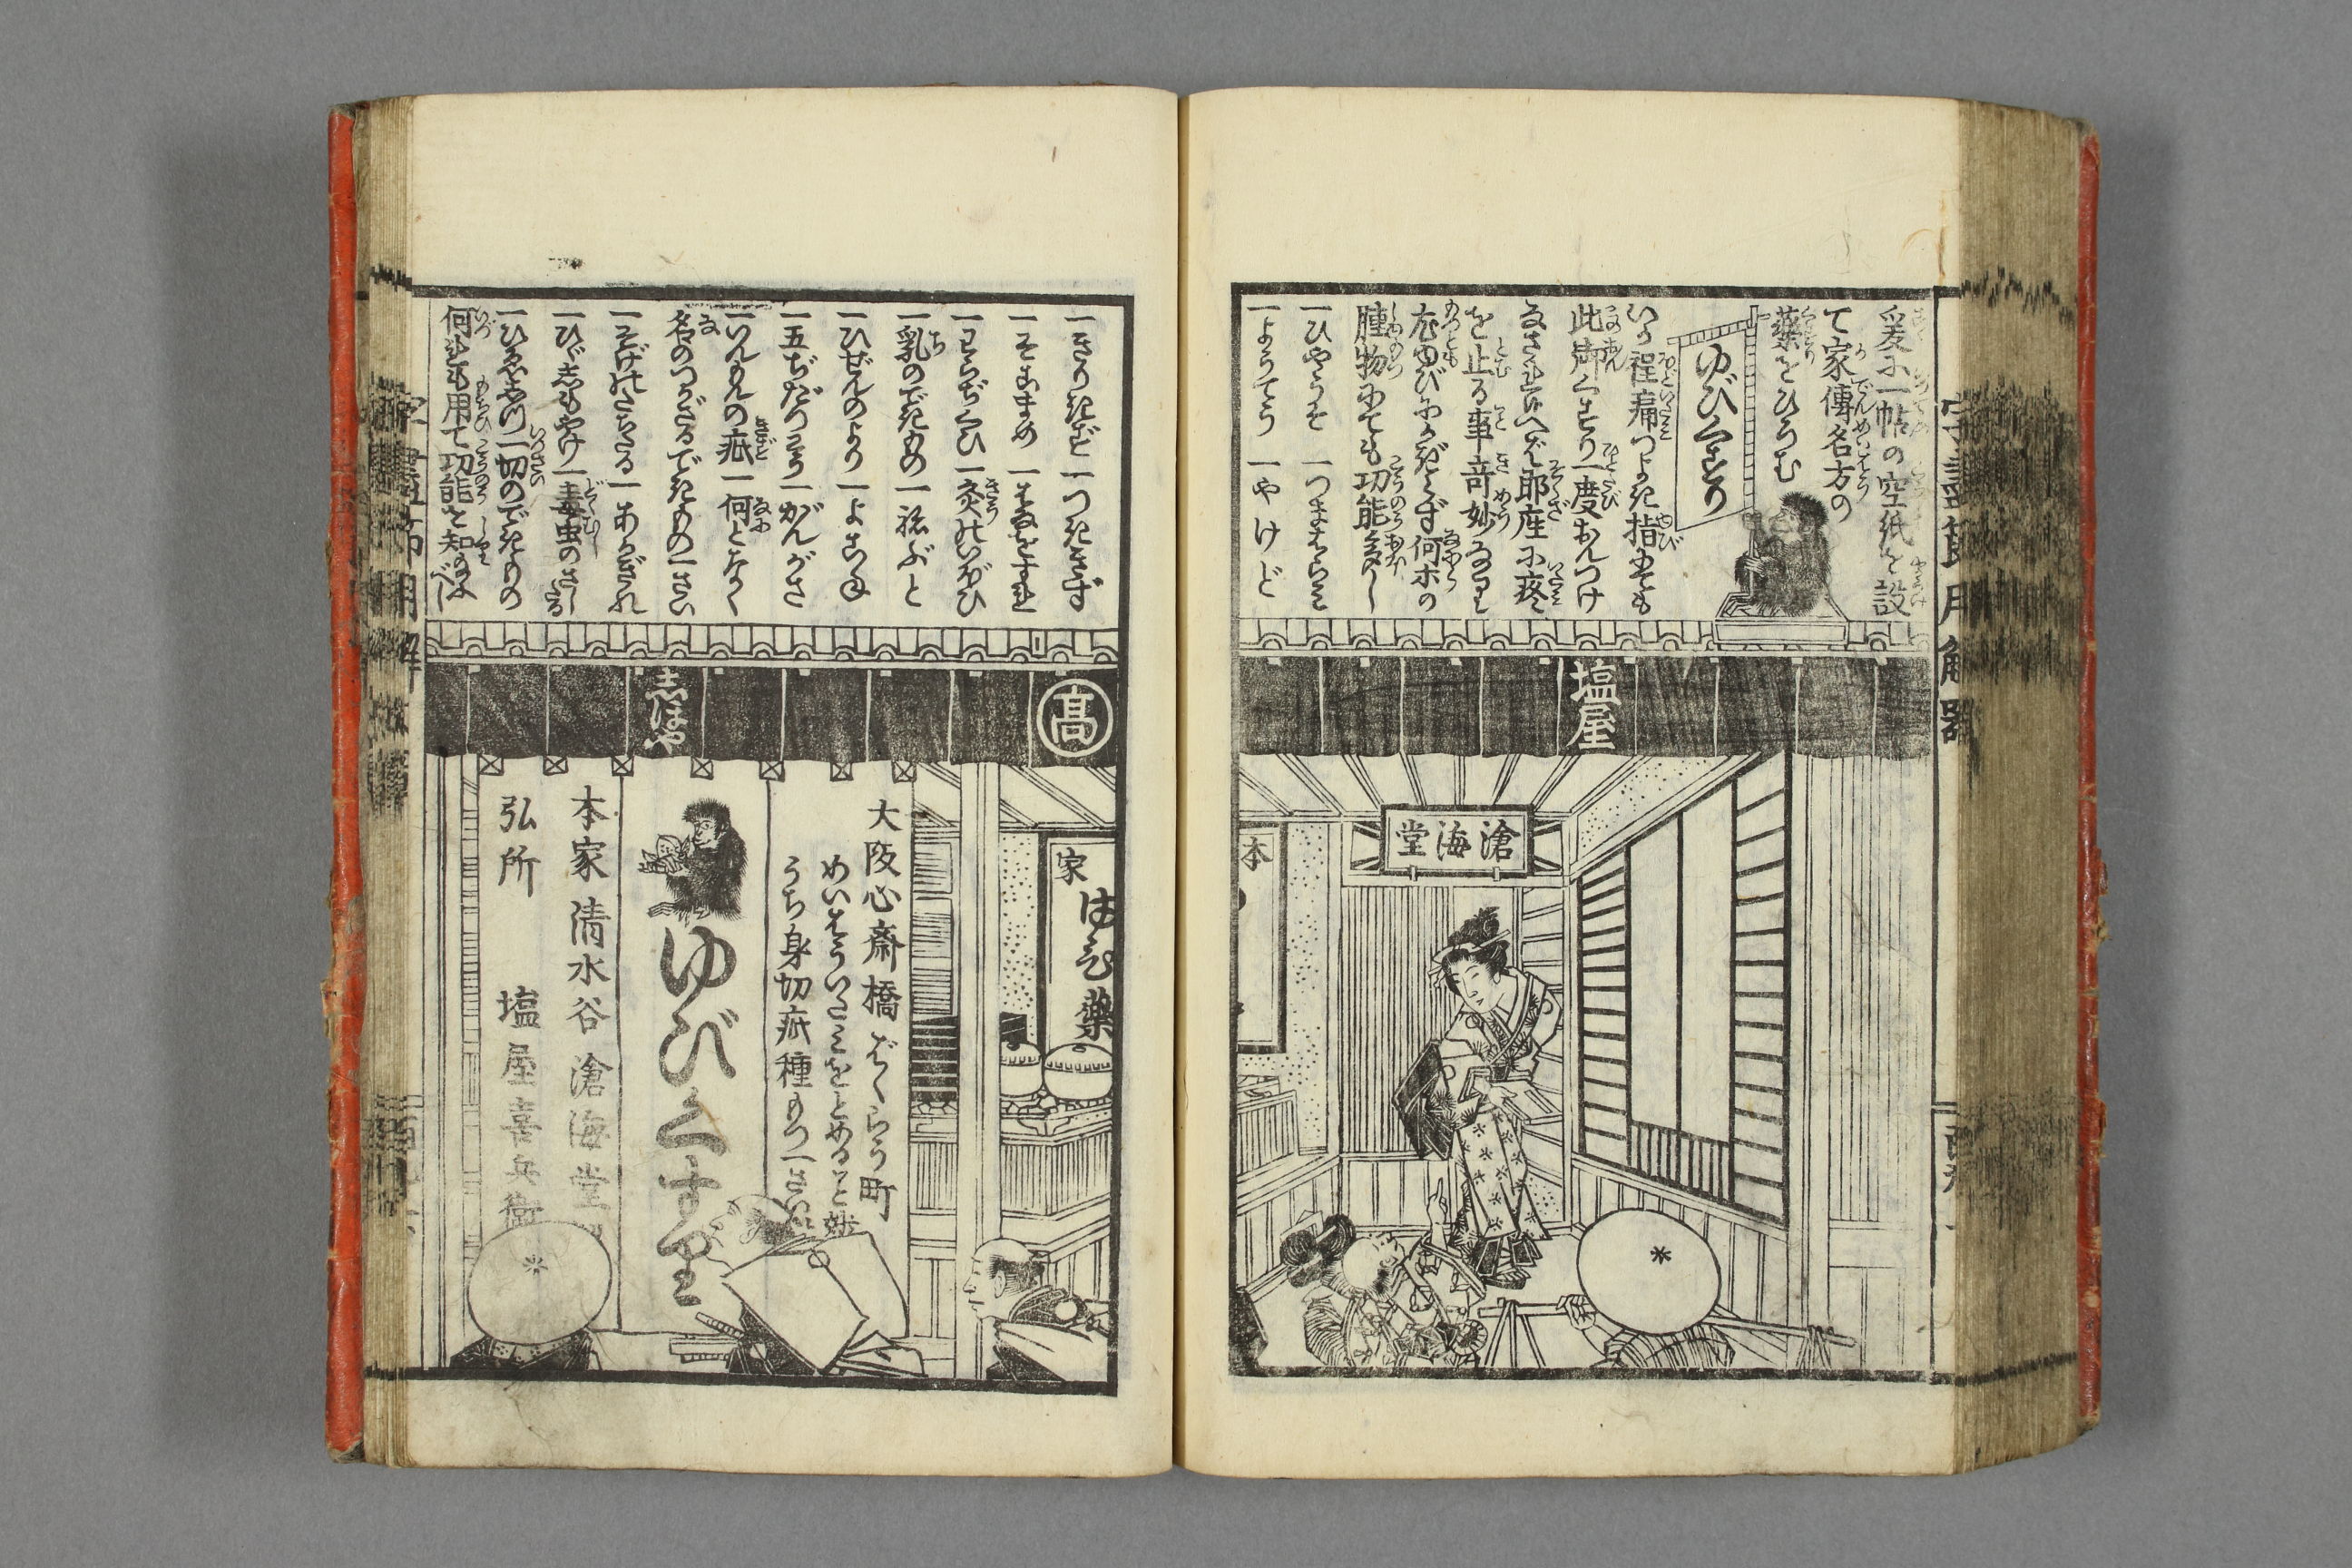 爰に一帖の空紙を設
て家傳名方の
藥をひろむ
ゆびくすり
いか程痛つよき指にても
此御くすり一度おんつけ
なされ候へば即座に疼
を止る事奇妙なり
尤ゆびにかぎらず何ホの
腫物にても功能多し
一ひやうそ 一つまはらみ
一ようてう 一やけど
塩屋
滄海堂
本
一きりきず 一つききず
一そこまめ 一はなをすれ
一わらぢくひ 一灸のいぼひ
一乳のできもの 一ねぶと
一ひぜんのより 一よこね
一五ぢだりこう 一がんがさ
一いんもんの疵 一何となく
名のつかざるできもの一さい
一そげのたちたる 一あかぎれ
一ひゞしもやけ 一毒虫のさしたる
一ひゑしつ一切のできもの
何れも用て功能を知給ふべし
髙
志ほや
家
ゆび藥
大阪心斎橋ばくらう町
めいはういたみをとめること妙
うち身切疵種もつ一さい
ゆびくすり
本家 清水谷 滄海堂
弘所 塩屋喜兵衛